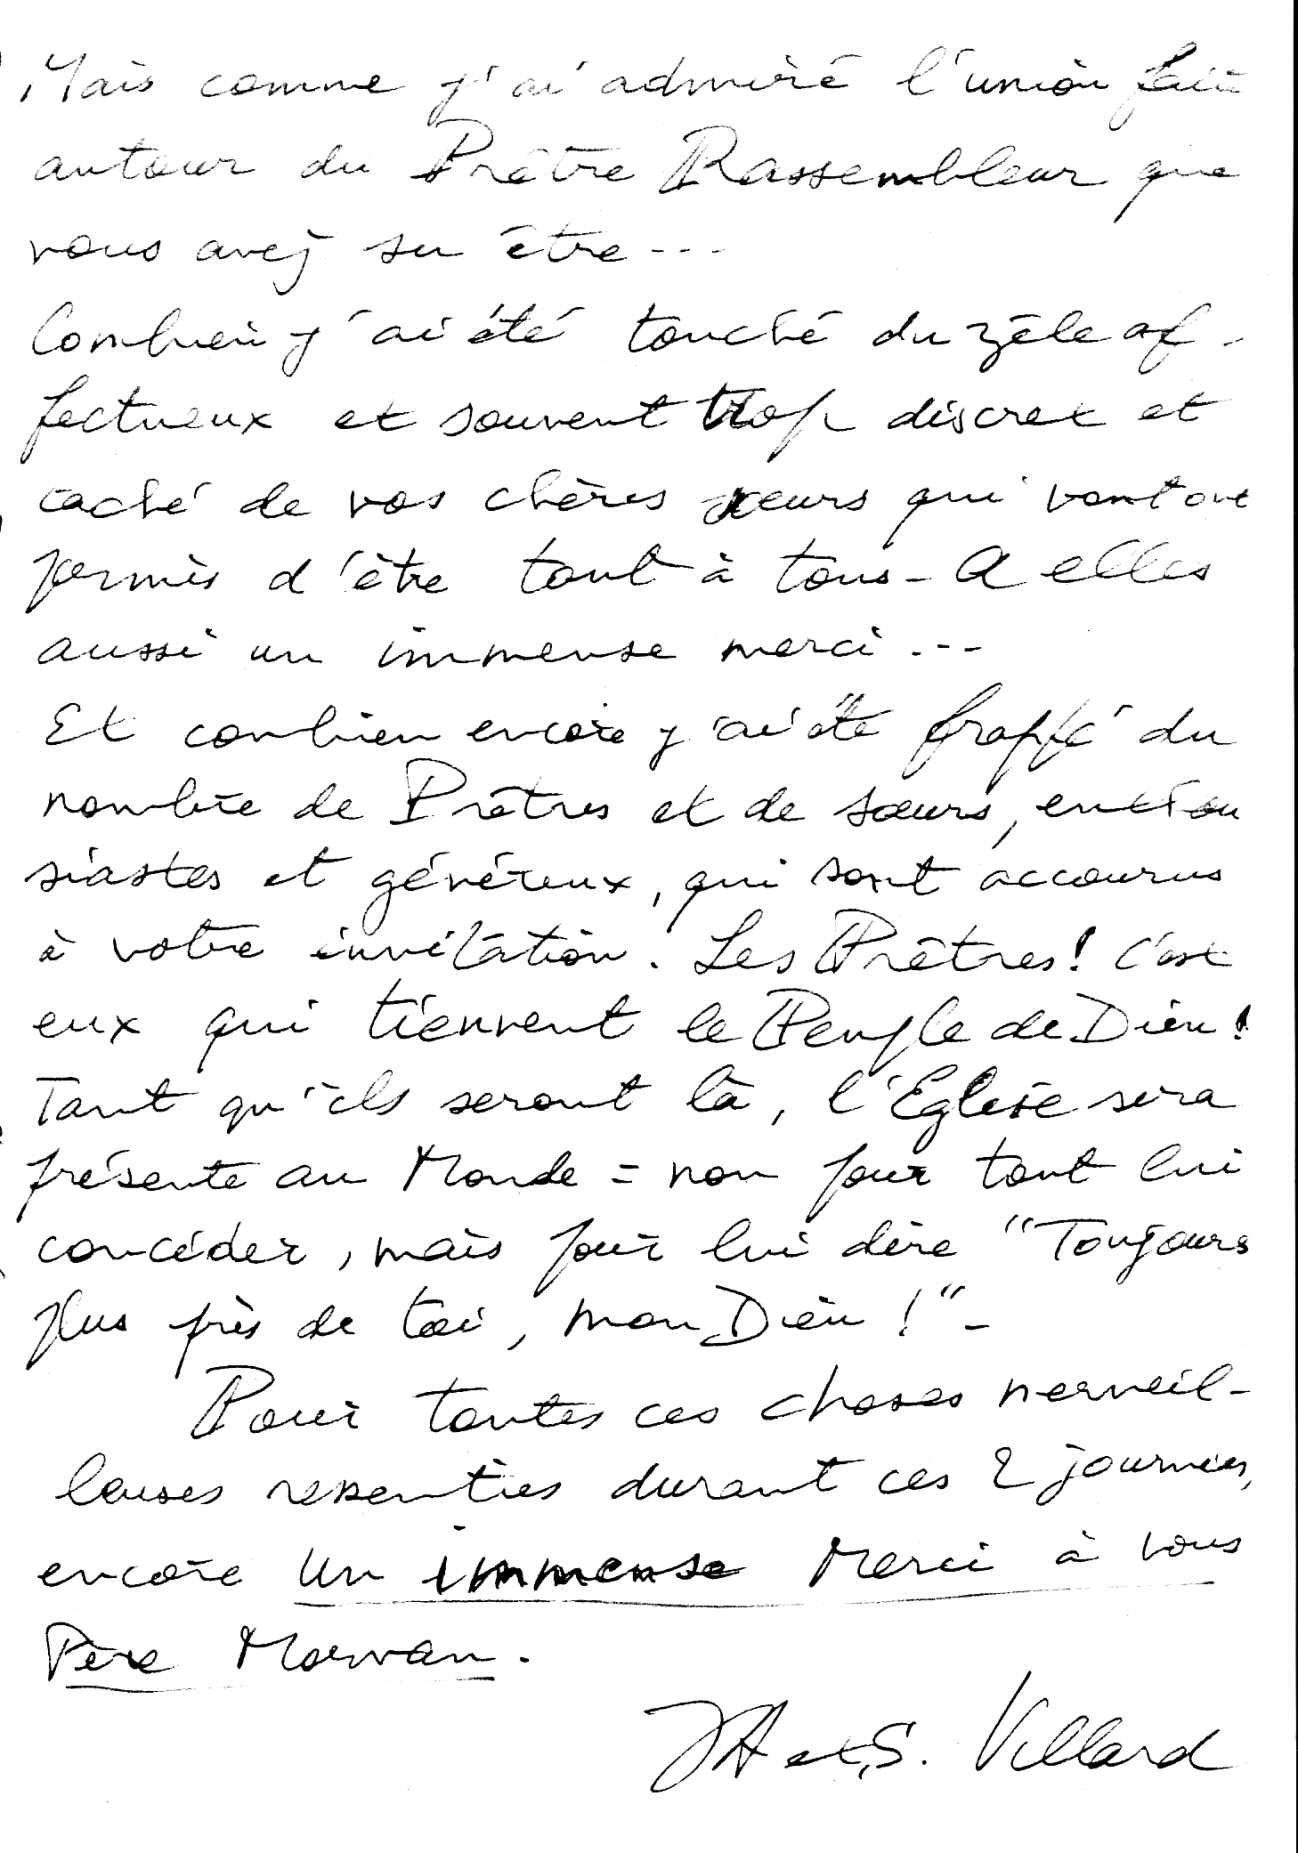 Mais comme j'ai admiré l'union faite
autour du Prêtre Rassembleur que
vous avez su être ---
Combien j'ai été touché du zèle af-
fectueux et souvent trop discret et
caché de vos chères sœurs qui vont ont
permis d'être tout à tous - A elles
aussi un immense merci ...
Et combien encore j'ai été frappé du
nombre de Prêtres et de sœurs, enthou
siastes et généreux, qui sont accourus
à votre invitation. Les Prêtres! C'est
eux qui tiennent le Peuple de Dieu!
Tant qu'ils seront là, l'Eglise sera
présente au Monde = non pour tout lui
concéder, mais pour lui dire "Toujours
plus près de toi, mon Dieu!" -
Pour toutes ces choses merveil-
leuses ressenties durant ces 2 journées,
encore un immense Merci à vous
Père Morvan.
et S. Villard